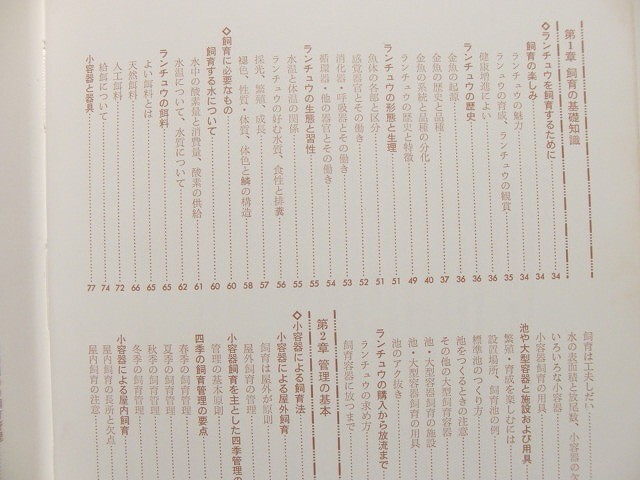 第1章 飼育の基礎知識
◇ランチュウを飼育するために……34
飼育の楽しみ……34
ランチュウの魅力……34
ランチュウの育成、ランチュウの観賞……35
健康増進によい……36
ランチュウの歴史……36
金魚の起源……36
金魚の歴史と品種……37
金魚の系統と品種の分化……40
ランチュウの歴史と特徴……49
ランチュウの形態と生理……51
魚体の各部と区分……51
感覚器官とその働き……52
消化器・呼吸器とその働き……53
循環器・他の器官とその働き……54
ランチュウの生態と習性……55
水温と体温の関係……55
ランチュウの好む水質、食性と排糞……56
採光、繁殖、成長……57
褪色、性質・体質、体色と鱗の構造……58
◇飼育に必要なもの……60
飼育する水について……60
水中の酸素量と消費量、酸素の供給……61
水温について、水質について……62
ランチュウの餌料……65
よい餌料とは……65
天然餌料……66
人工餌料……72
給餌について……74
小容器と器具……77
飼育は工夫しだい……
水の表面積と放尾数、小容器の
いろいろな小容器……
小容器飼育の用具……
池や大型容器と施設および用具
繁殖・育成を楽しむには……
設置場所、飼育池の例……
標準池のつくり方……
池をつくるときの注意……
その他の大型飼育容器……
池・大型容器飼育の施設……
池・大型容器飼育の用具……
池のアク抜き……
ランチュウの購入から放流まで……
ランチュウの求め方……
飼育容器に放つまで……
第2章 管理の基本
◇小容器による飼育法……
小容器による屋外飼育……
飼育は屋外が原則……
屋外飼育の管理……
小容器飼育を主とした四季管理の
管理の基本原則……
四季の飼育管理の要点……
春季の飼育管理……
夏季の飼育管理……
秋季の飼育管理……
冬季の飼育管理……
小容器による屋内飼育……
屋内飼育の長所と欠点……
屋内飼育の注意……